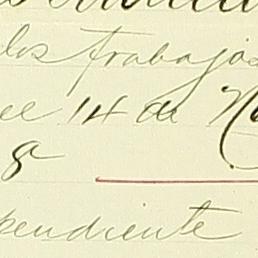 los trabajos
el 14 de N
8
pendiente